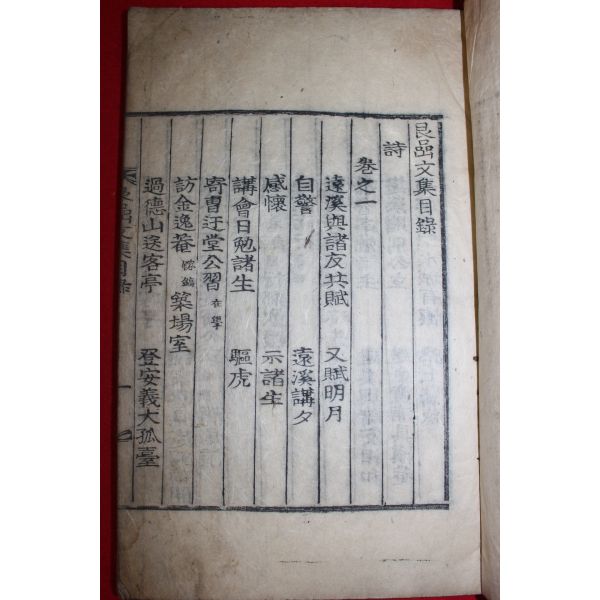 艮嵒文集目錄
詩
卷之一
遠溪與諸友共賦　又賦明月
自警　遠溪講夕
感懷　示諸生
講會日勉諸生　驅虎
寄曹迂堂公習在學
訪金逸菴築場室
過德山送客亭　登安義大孤臺
文集目錄　一